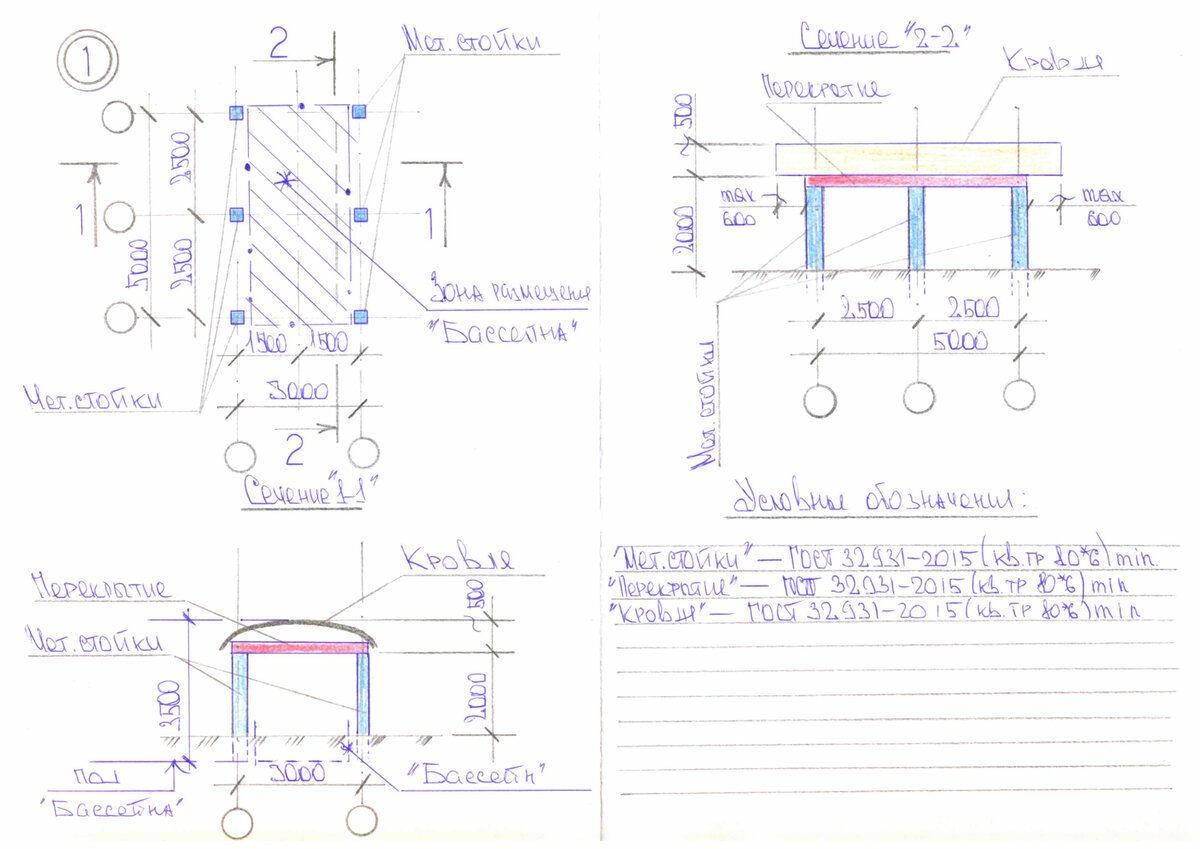 1
2
Мет.стойки
2500
2500
5000
1
1
Зона размещения
"Бассейна"
1500
1500
3000
Мет.стойки
2
Сечение "1-1"
Перекрытие
Кровля
Мет.стойки
~500
3500
2000
3000
Пол
"Бассейна"
"Бассейн"
Сечение "2-2"
Кровля
Перекрытие
~500
2000
max
600
max
600
2500
2500
5000
Мет.стойки
Условные обозначения:
"Мет.стойки" — ГОСТ 32931-2015 (кв.тр 80*6) min.
"Перекрытие" — ГОСТ 32931-2015 (кв.тр 80*6) min
"Кровля" — ГОСТ 32931-2015 (кв.тр 80*6) min